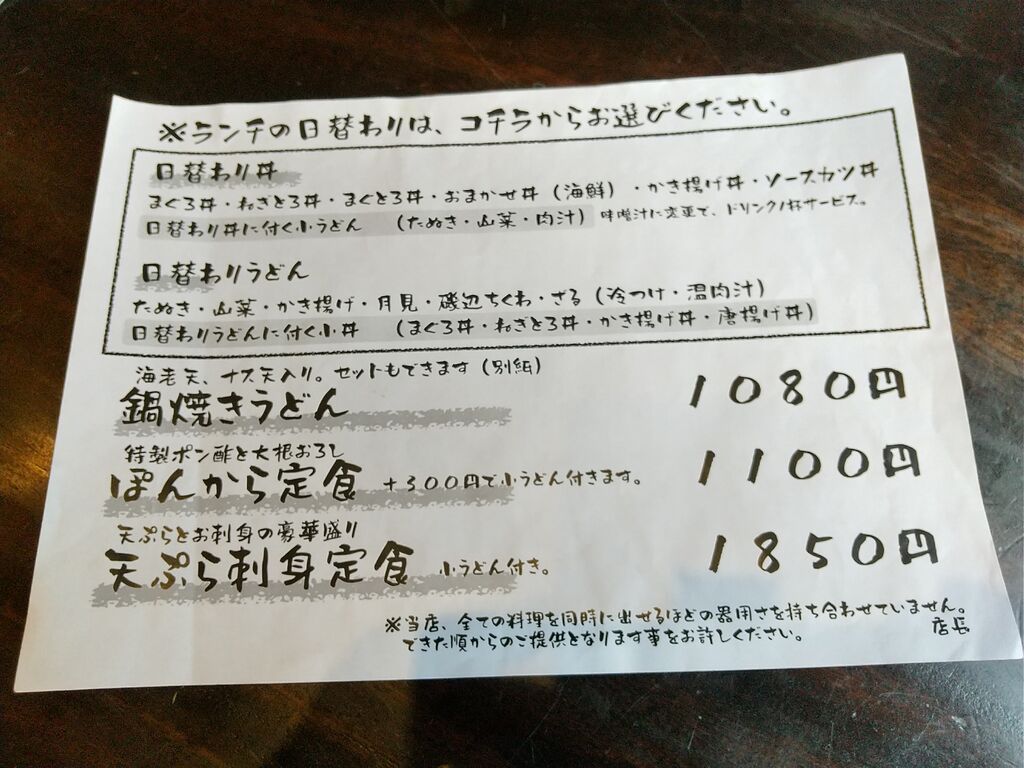 ※ランチの日替わりは、コチラからお選びください。
日替わり丼
まぐろ丼・ねぎとろ丼・まぐとろ丼・おまかせ丼（海鮮）・かき揚げ丼・ソースカツ丼
日替わり丼に付く小うどん　（たぬき・山菜・肉汁）味噌汁に変更で、ドリンク1杯サービス。
日替わりうどん
たぬき・山菜・かき揚げ・月見・磯辺ちくわ・ざる（冷つけ・温肉汁）
日替わりうどんに付く小丼　（まぐろ丼・ねぎとろ丼・かき揚げ丼・唐揚げ丼）
海老天、ナス天入り。セットもできます（別紙）
鍋焼きうどん　1080円
特製ポン酢と大根おろし
ぽんから定食　＋300円で小うどん付きます。　1100円
天ぷらとお刺身の豪華盛り
天ぷら刺身定食　小うどん付き。　1850円
※当店、全ての料理を同時に出せるほどの器用さを持ち合わせていません。
できた順からのご提供となります事をお許しください。　店長